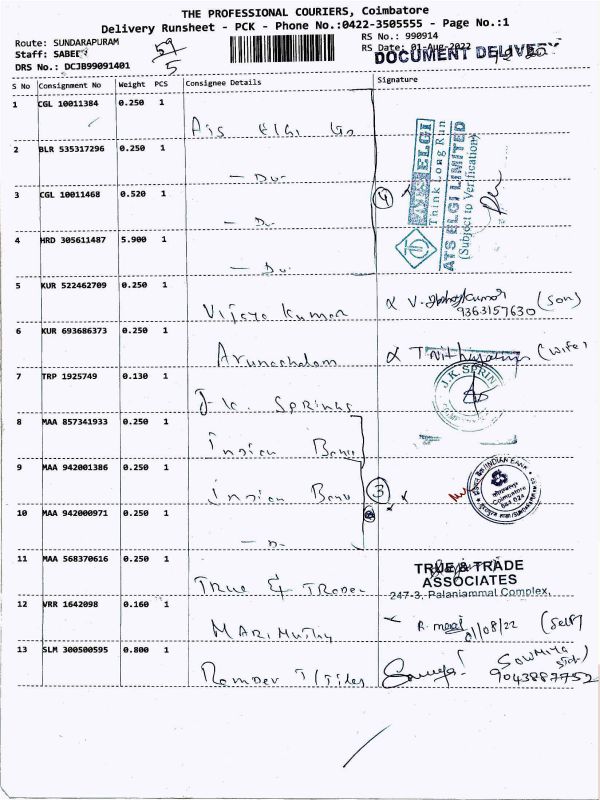 THE PROFESSIONAL COURIERS, Coimbatore
Delivery Runsheet - PCK - Phone No.:0422-3505555 - Page No.:1
Route: SUNDARAPURAM
RS No.: 990914
Staff: SABEE
59
RS Date: 01-Aug-2022
DOCUMENT DELIVERY
DRS No.: DCJB99091401
5
S No Consignment No Weight PCS Consignee Details Signature
1 CGL 10011384 0.250 1 Ats Elgi
2 BLR 535317296 0.250 1 - Do -
3 CGL 10011468 0.520 1 - Do
4
4 HRD 305611487 5.900 1 - Do
ELGI
Think Long Run
ATS ELGI LIMITED
(Subject to Verification)
5 KUR 522462709 0.250 1 Vijaya Kumar V. kumar (Son)
9363157630
6 KUR 693686373 0.250 1 Arunachalam (wife)
7 TRP 1925749 0.130 1 J.K. SPRINGS
J.K. SPRIN
8 MAA 857341933 0.250 1 Indian Bank
9 MAA 942001386 0.250 1 Indian Bank
3
INDIAN BANK
Coimbatore
641 024
10 MAA 942000971 0.250 1 - D -
11 MAA 568370616 0.250 1 True & Trade
TRUE & TRADE
ASSOCIATES
247-3, Palaniammal Complex,
12 VRR 1642098 0.160 1 MARIMUTHU R. (Self)
01/08/22
13 SLM 300500595 0.800 1 Ramdev T/Tiles SOWMIYA
9043887752